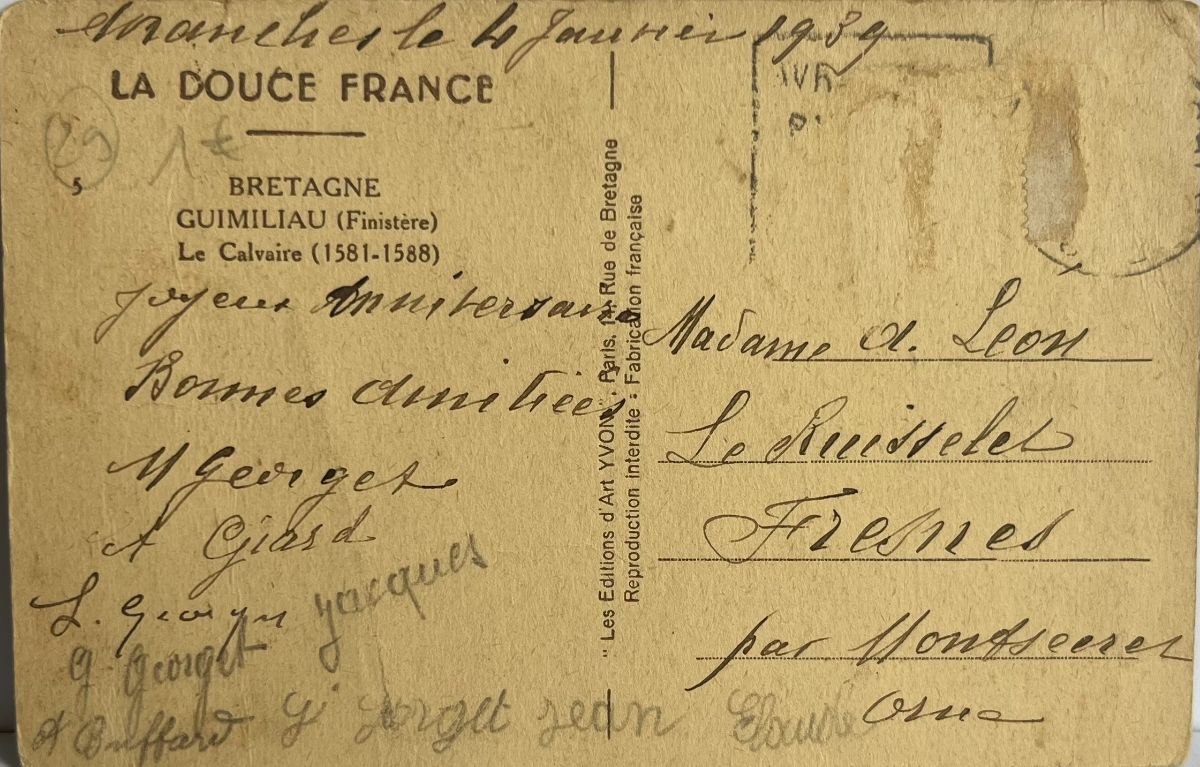 Avranches le 4 Janvier 1939
LA DOUCE FRANCE
29
1€
5
BRETAGNE
GUIMILIAU (Finistère)
Le Calvaire (1581-1588)
Joyeux Anniversaire
Bonnes Amitiées
M Georget
A Giard
L. Georget
Jacques
G Georget
A Buffard
G Jorget Jean Claude
"Les Editions d'Art YVON", Paris, 15, Rue de Bretagne
Reproduction interdite - Fabrication française
Madame A. Léon
Le Ruisselet
Fresnes
par Montsecret
Orne